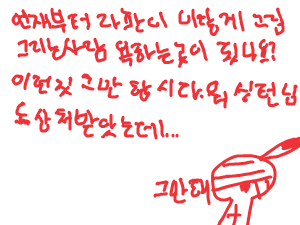 언재부터 라판이 이렇게 그림
그리는사람 욕하는곳이 됫나요?
이런짓 그만 합시다. 뭐 싱턴님
도상처받앗는데...
그만해